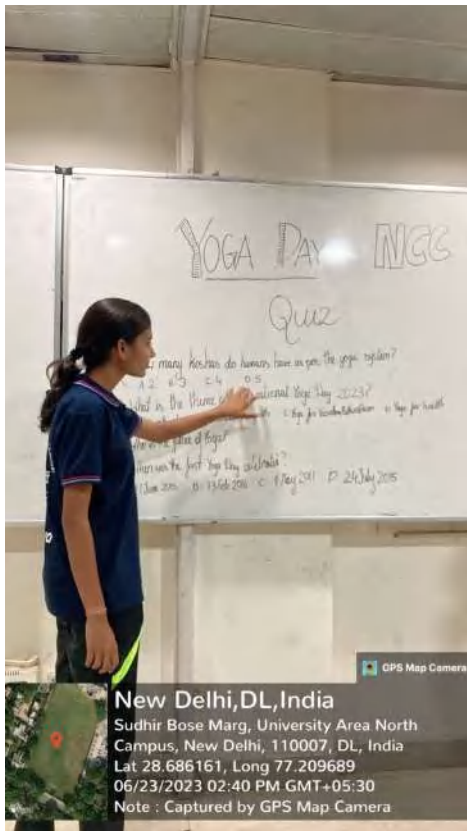 YOGA DAY NCC
Quiz
many Koshas do humans have as per the yoga system?
A 2 B 3 C 4 D 5
What is the theme of national Yoga Day 2023?
C. Yoga for Vasudhaiva Kutumbakam D. Yoga for health
of Yoga?
was the first Yoga Day celebrated?
June 2015 B. C. 1 May 2011 D. 24 July 2015
GPS Map Camera
New Delhi,DL,India
Sudhir Bose Marg, University Area North
Campus, New Delhi, 110007, DL, India
Lat 28.686161, Long 77.209689
06/23/2023 02:40 PM GMT+05:30
Note : Captured by GPS Map Camera